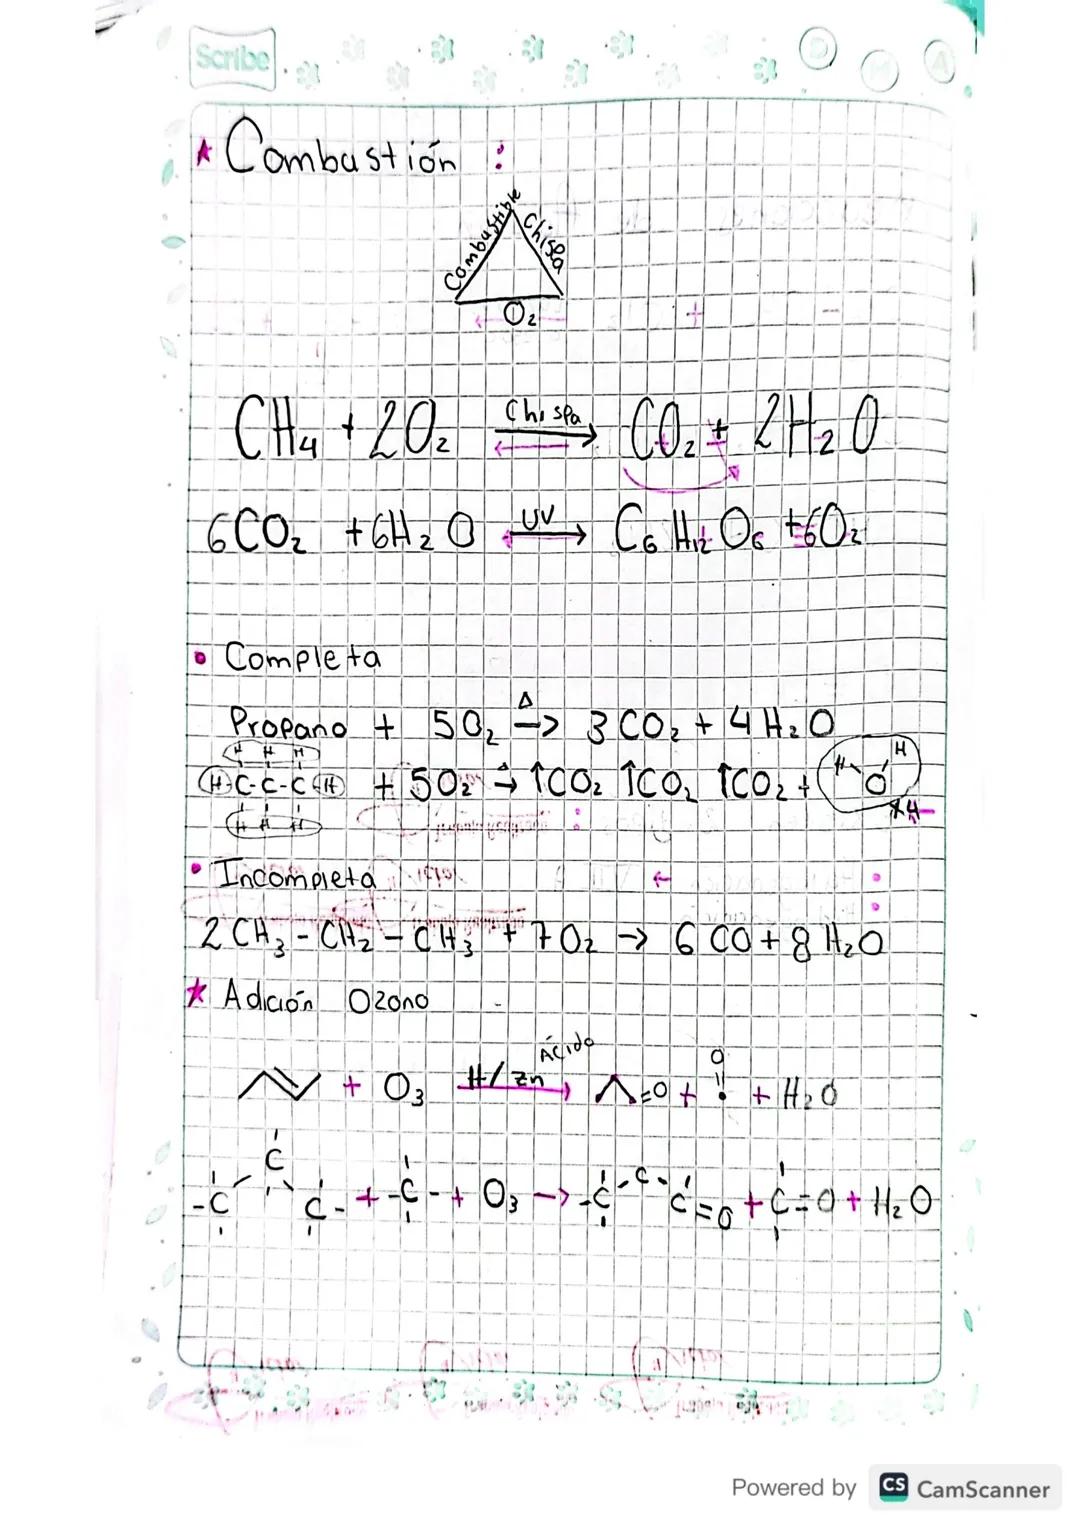 Scribe
D M A
* Combustión :
Combustible Chispa
O₂
CH₄ + 2O₂ Chispa → CO₂ + 2H₂O
6CO₂ + 6H₂O UV → C₆H₁₂O₆ + 6O₂
• Completa
Propano + 5O₂ Δ→ 3CO₂ + 4H₂O
H H H
H-C-C-C-H + 5O₂ Δ→ ↑CO₂ ↑CO₂ ↑CO₂ + H O H
H H H
x4
• Incompleta
2CH₃-CH₂-CH₃ + 7O₂ → 6CO + 8H₂O
* Adición Ozono
Ácido
+ O₃ H/Zn → =O + O + H₂O
-C C C- + -C- + O₃ → -C-C-C=O + C=O + H₂O
Powered by CS CamScanner